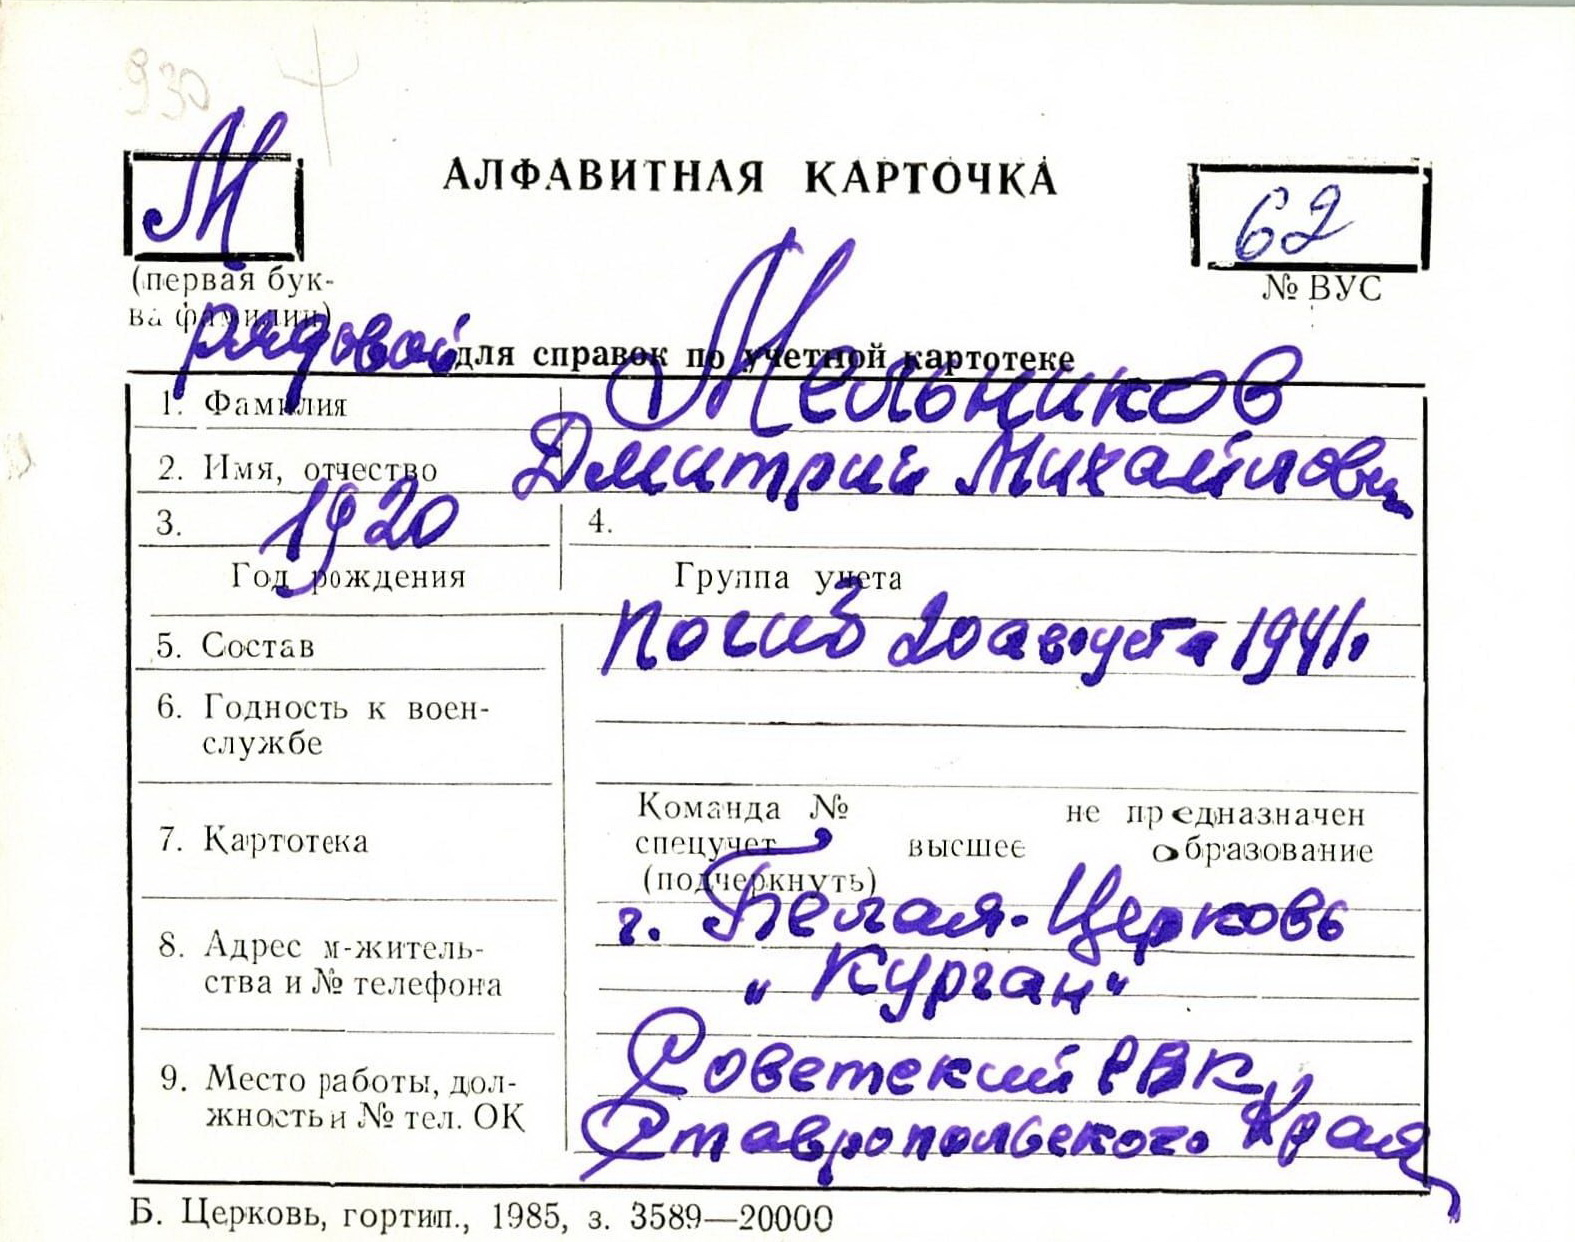 930
М
АЛФАВИТНАЯ КАРТОЧКА
62
(первая бук-
ва фамилии)
№ ВУС
рядовой
для справок по учетной картотеке
1. Фамилия Мельников
2. Имя, отчество Дмитрий Михайлович
3. 1920 4.
Год рождения Группа учета
5. Состав погиб 20 августа 1941г.
6. Годность к воен-
службе
7. Картотека
Команда № не предназначен
спецучет высшее образование
(подчеркнуть)
8. Адрес м-житель-
ства и № телефона
г. Белая-Церковь
"Курган"
9. Место работы, дол-
жность и № тел. ОК
Советский РВК,
Ставропольского Края
Б. Церковь, гортип., 1985, з. 3589—20000